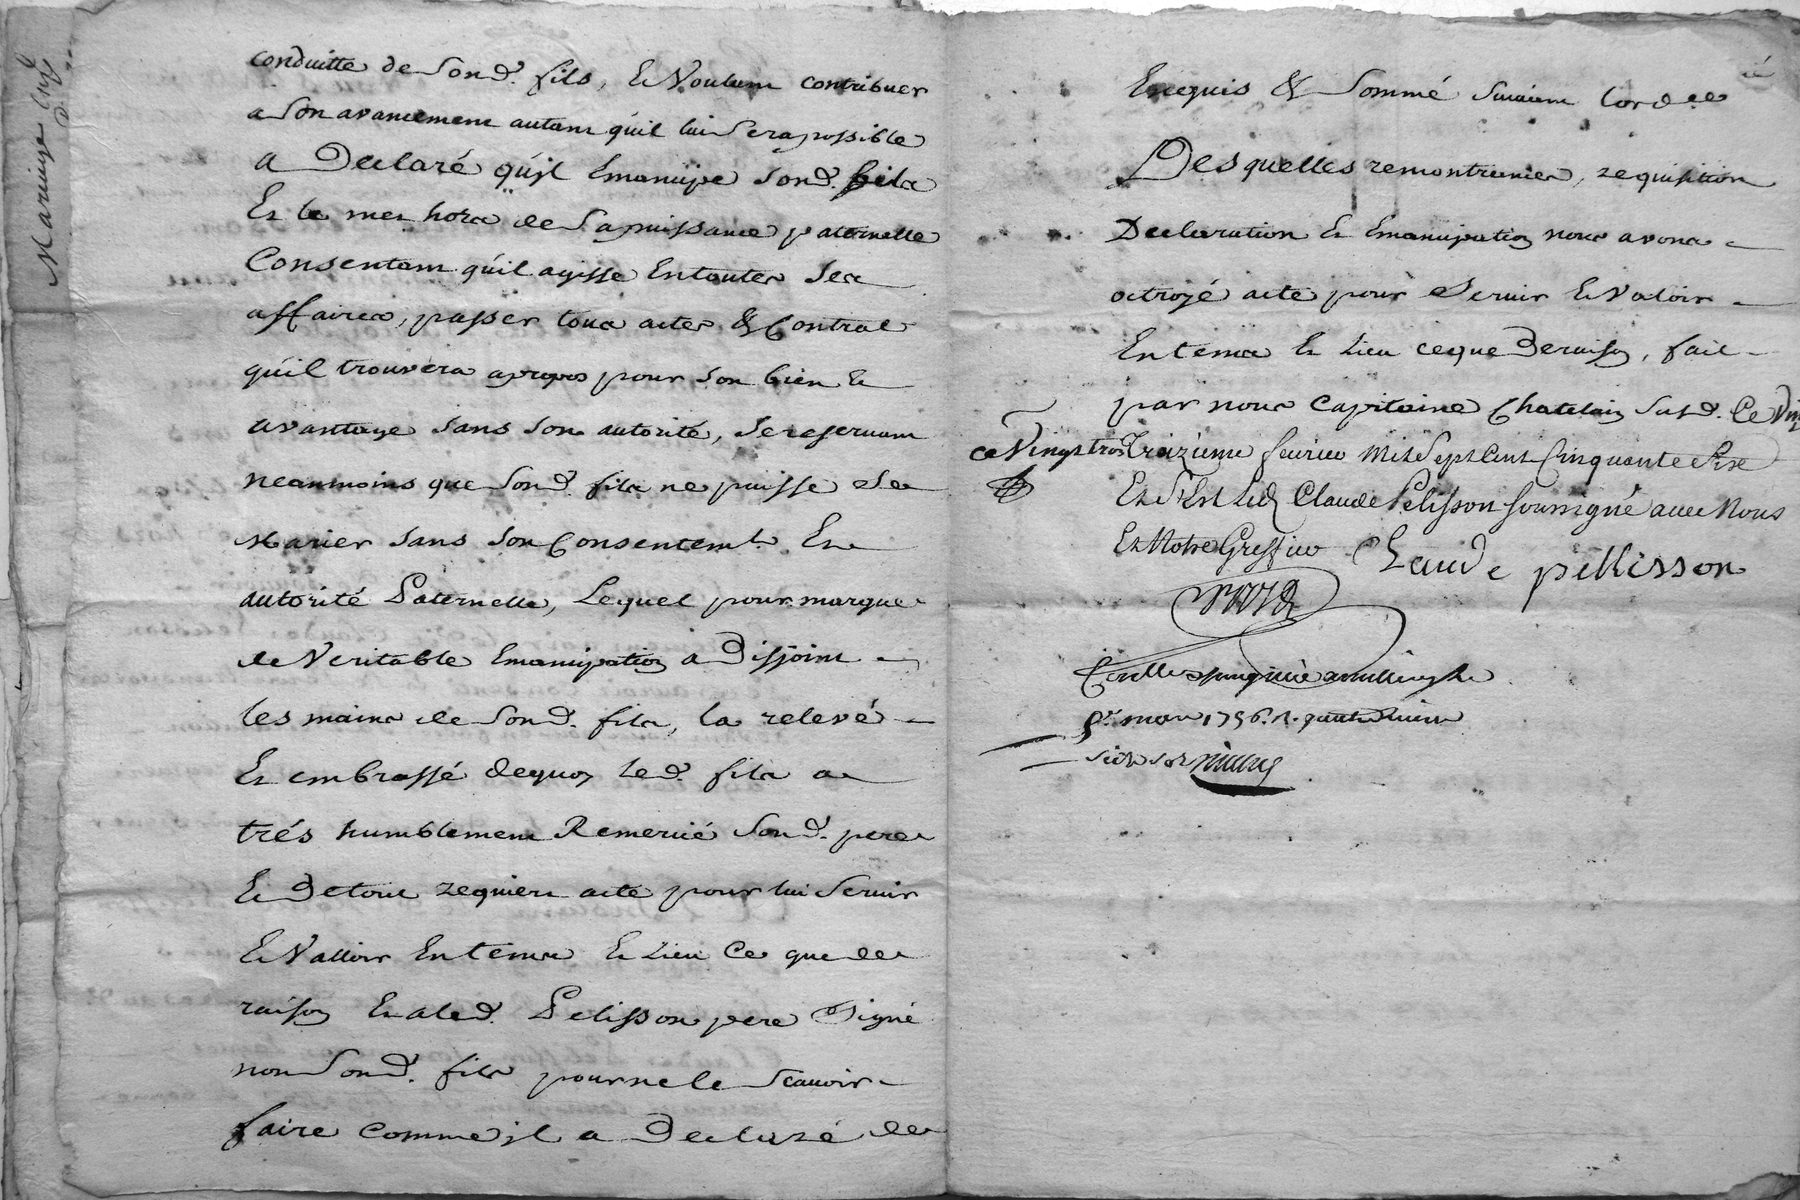 conduitte de Sond. fils, Et Voulant contribuer
a Son avancement autant qu'il lui Sera possible
a Declaré qu'jl Emancipe Sond. fils
Et le met hors de Sa puissance paternelle
Consentant qu'il agisse En toutes Ses
affaires, passer tous actes & Contrats
qu'il trouvera apropos pour Son bien Et
avantage Sans Son autorité, Se reservant
neanmoins que Sond. fils ne puisse Se
Marier Sans Son Consentemt. Et
autorité Paternelle, Lequel pour marque
de Veritable Emancipation a Disjoint
les mains de Sond. fils, la relevé
Et embrassé dequoy led. fils a
trés humblement Remercié Sond. pere
Et De tout requiert acte pour lui Servir
Et Valloir En tems Et Lieu Ce que de
raison Et a led. Pelisson pere Signé
non Sond. fils pour ne le Scavoir
faire comme jl a Declaré de
Enequis & Sommé Suivant lordce
Desquelles remontrances, requisition
Declaration Et Emancipation nous avons
octroyé acte pour Servir Et Valoir
En tems Et Lieu ce que De raison, fait
par nous Capitaine Chatelain Susd. Ce Vin
ce Vingt trois Troizieme fevrier Mil Sept Cent Cinquante Six
Et S'Est Led. Claude Pelisson Soussigné avec Nous
Et Notre Greffier Claude pellisson
mars 1756. R.
Mariage